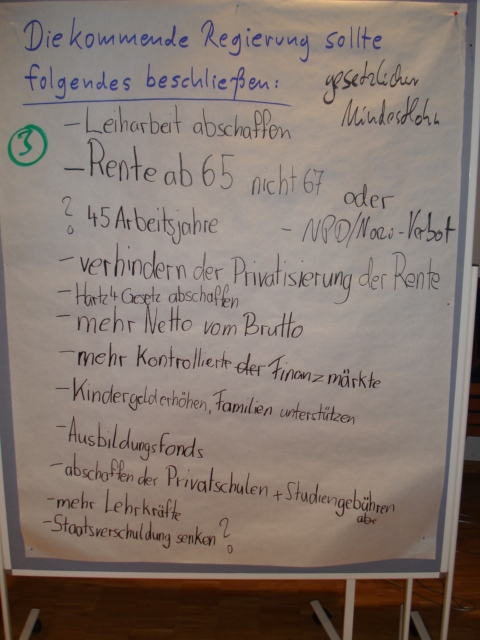 Die kommende Regierung sollte
folgendes beschließen:
gesetzlicher
Mindestlohn
3
- Leiharbeit abschaffen
- Rente ab 65 nicht 67 oder
? 45 Arbeitsjahre
- NPD/Nazi-Verbot
- verhindern der Privatisierung der Rente
- Hartz4 Gesetz abschaffen
- mehr Netto vom Brutto
- mehr Kontrollierte der Finanzmärkte
- Kindergeld erhöhen, Familien unterstützen
- Ausbildungsfonds
- abschaffen der Privatschulen + Studiengebühren
- mehr Lehrkräfte
- Staatsverschuldung senken ?